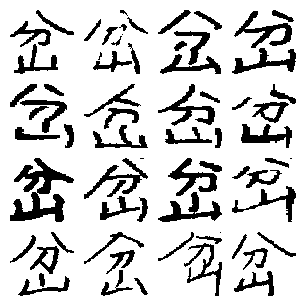 岔岔岔岔
岔岔岔岔
岔岔岔岔
岔岔岔岔